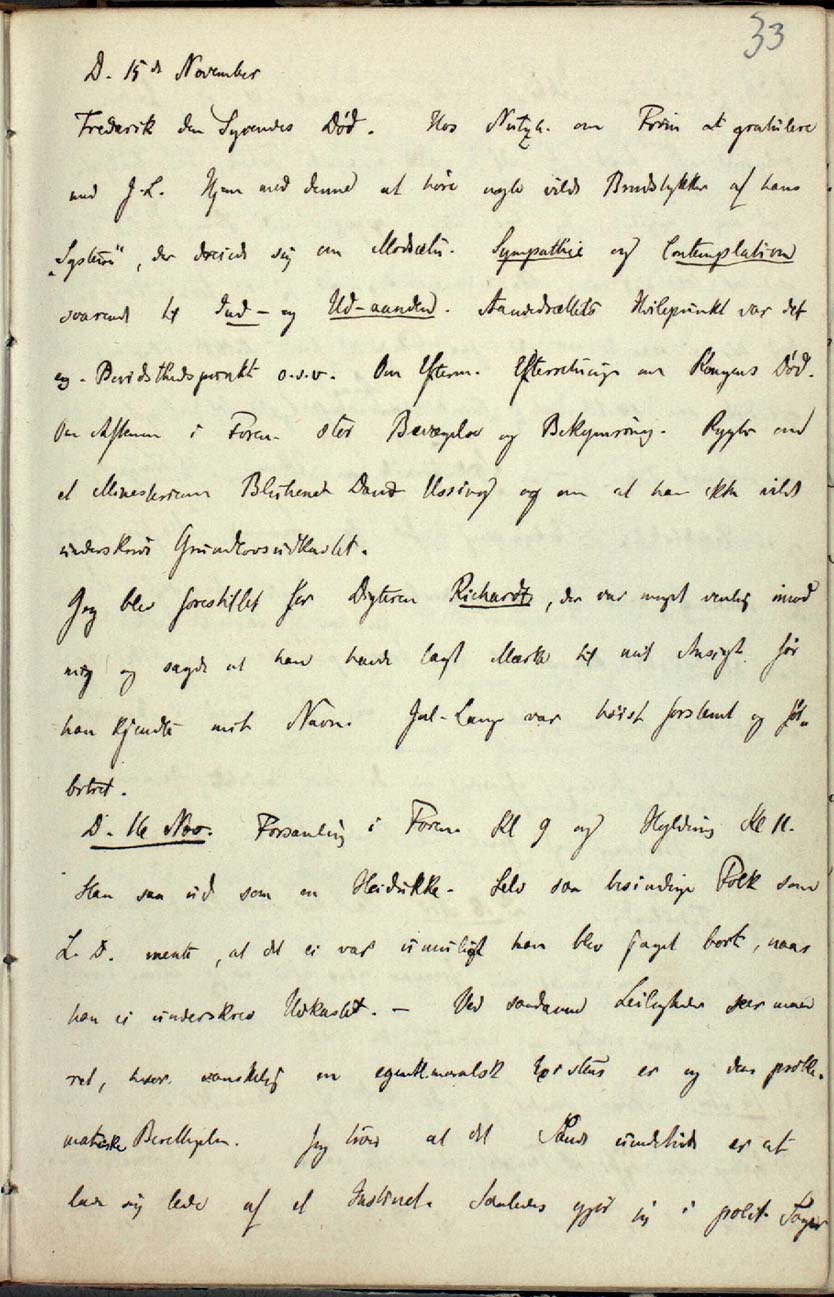 33
D. 15de November
Frederik den Syvendes Død. Hos Nutzh. om Form. at gratulere
med J-L. Hjem med denne at höre nogle vilde Brudstykker af hans
„System", der dreiede sig om Modsætn. Sympathie og Contemplation
svarende til Ind- og Ud-aanden. Aandedrættets Hvilepunkt var det
eg. Bevidsthedspunkt o.s.v. Om Efterm. Efterretning om Kongens Død.
Om Aftenen i Foren. stor Bevægelse og Bekymring. Rygter om
et Ministerium Bluhme David Ussing og om at han ikke vilde
underskrive Grundlovsudkastet.
Jeg blev forestillet for Digteren Richardt, der var meget venlig imod
mig og sagde at han havde lagt Mærke til mit Ansigt før
han kjendte mit Navn. Jul-Lange var höist forstemt og for-
bitret.
D. 16 Nov. Forsamling i Foren. Kl 9 og Hylding Kl 11.
Han saa ud som en Heidukke. Selv saa besindige Folk som
L. D. mente, at det ei var umuligt han blev jaget bort, naar
han ei underskrev Udkastet. — Ved saadanne Leiligheder seer man
ret, hvor vanskelig en egentl. moralsk Existens er og dens proble-
matiske Berettigelse. Jeg troer at det Sande undertiden er at
lade sig lede af et Instinct. Saaledes gjør jeg i polit. Sager